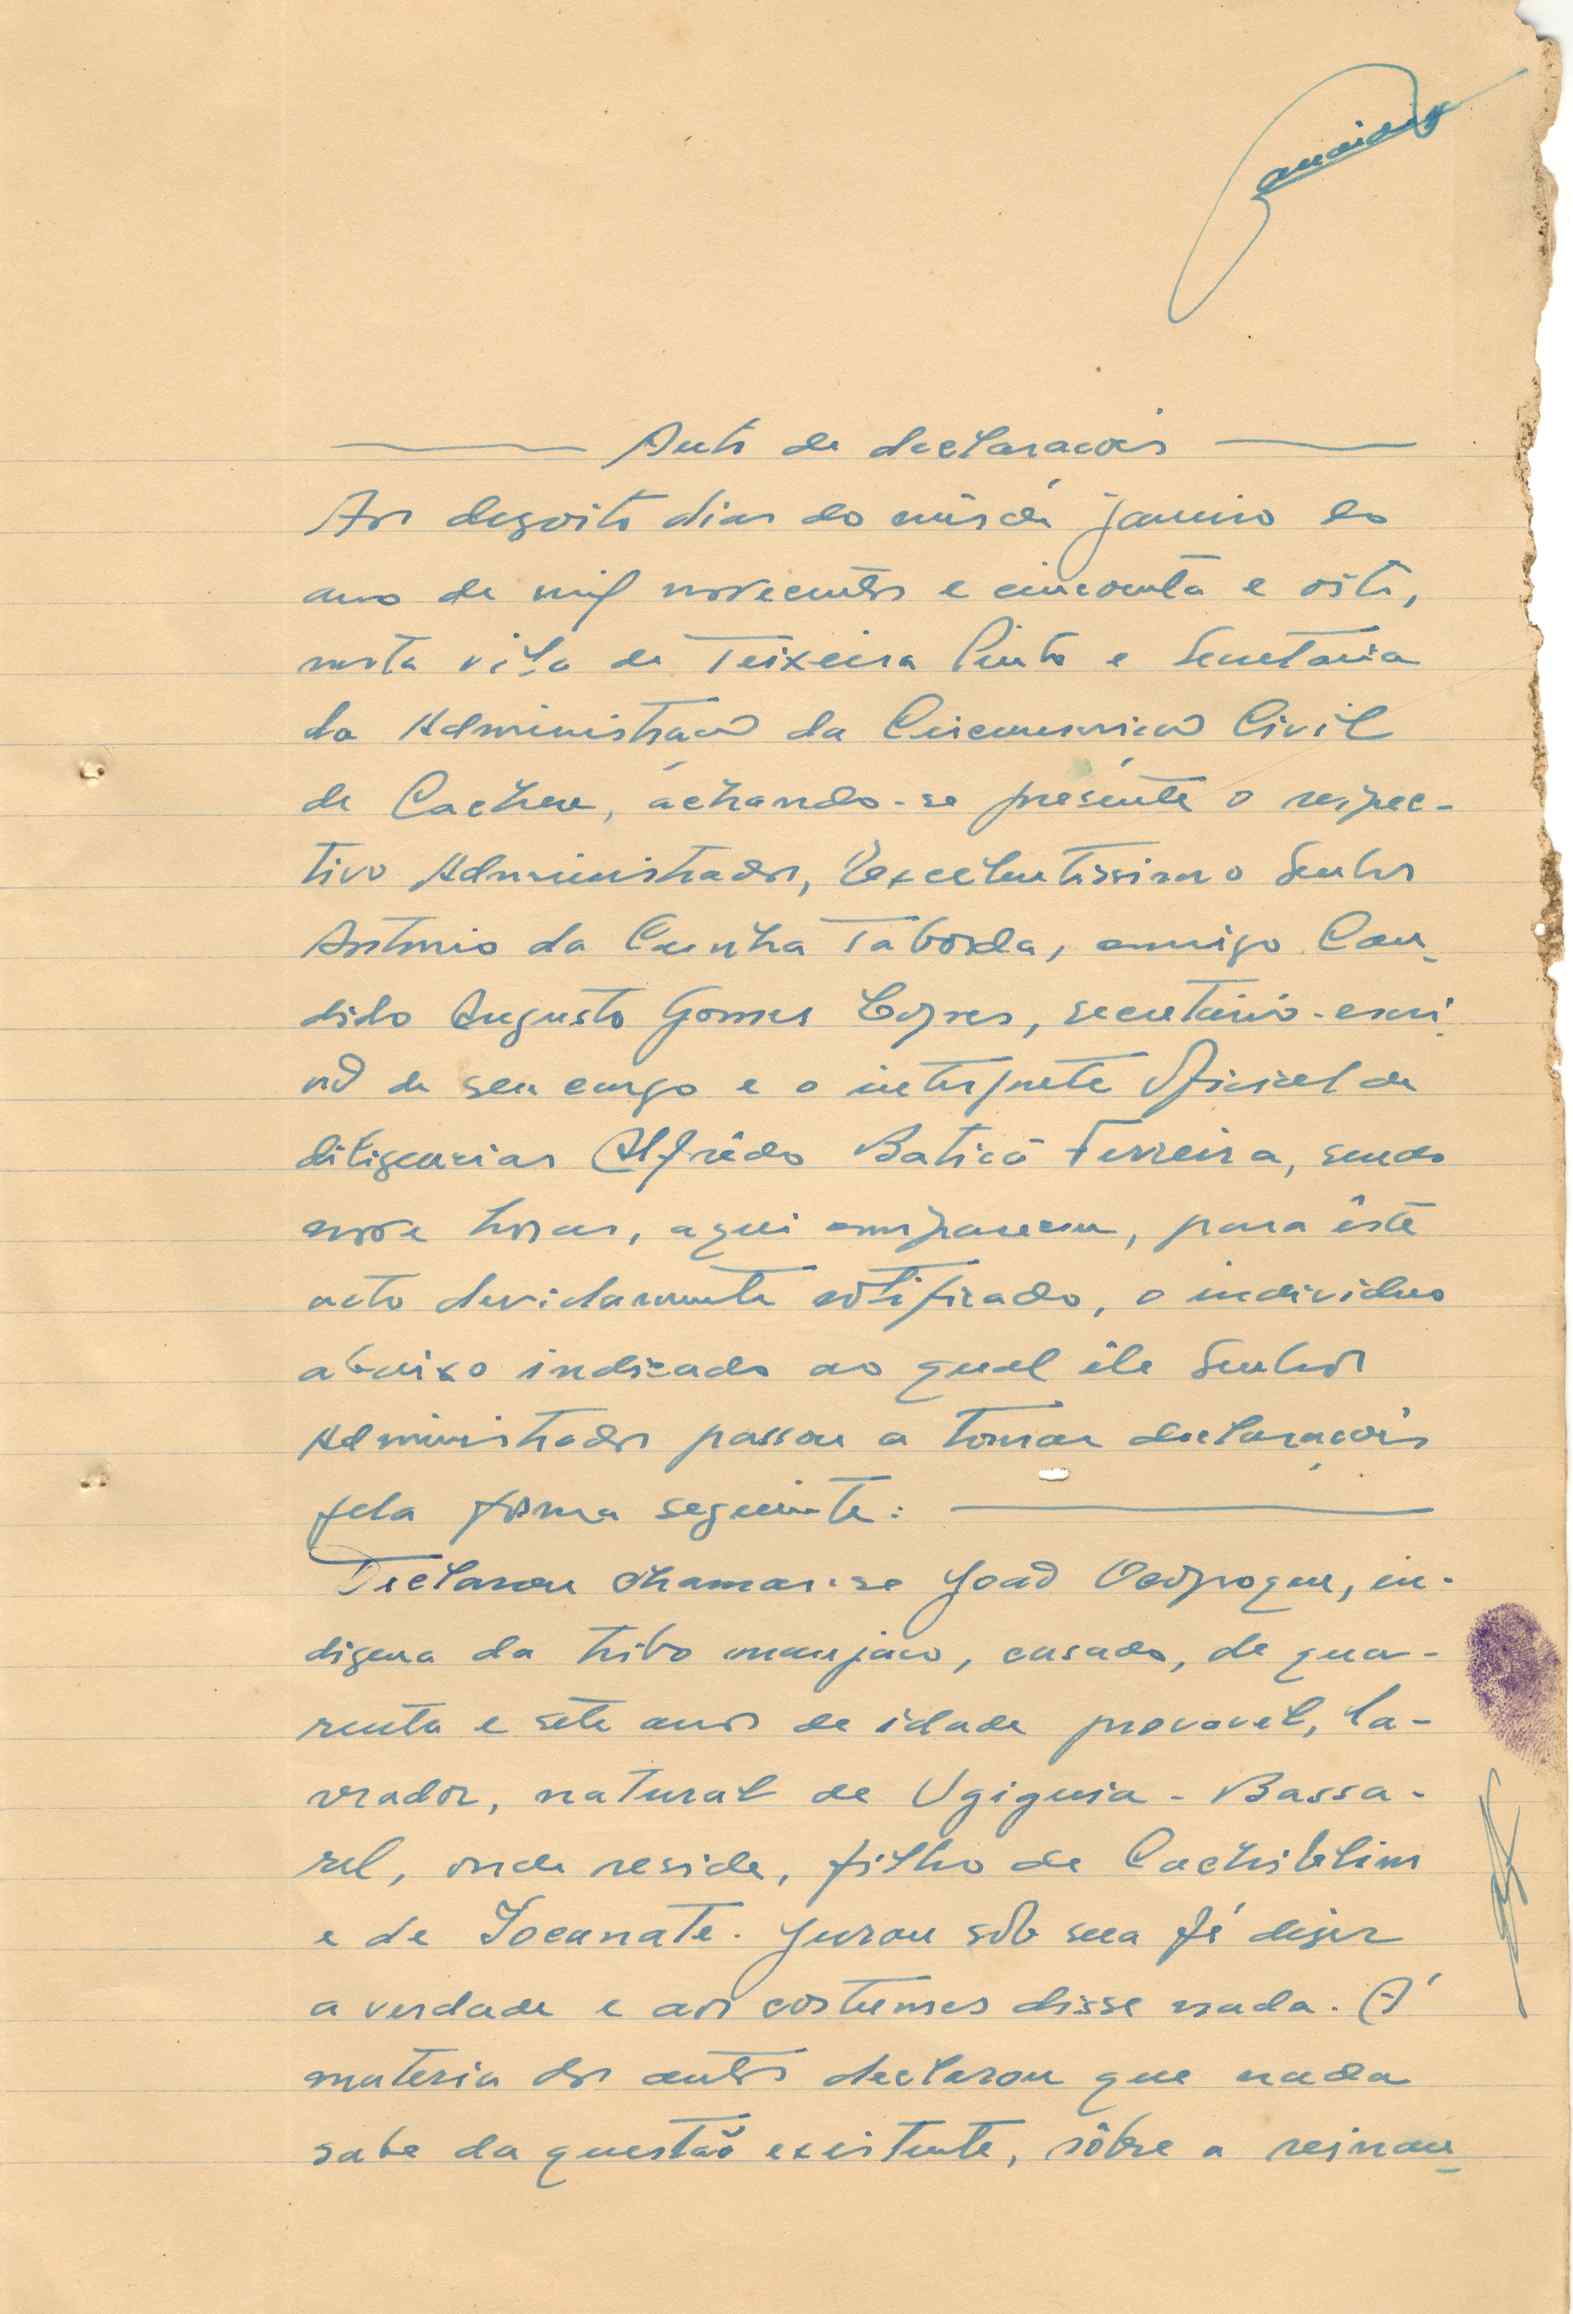 Auto de declaracois
Aos dezoito dias do mês de janeiro do
ano de mil novecentos e cincoenta e oito,
nesta vila de Teixeira Pinto e Secretaria
da Administração da Circunscrição Civil
de Cacheu, achando-se presente o respec-
tivo Administrador, Excelentissimo Senhor
Antonio da Cunha Taborda, comigo Can-
dido Augusto Gomes Lopes, secretário-escri-
vão de seu cargo e o interprete oficial de
diligencias Alfrêdo Baticã Ferreira, sendo
nove horas, aqui compareceu, para êste
acto devidamente notificado, o individuo
abaixo indicado ao qual êle Senhor
Administrador passou a tomar declaraçois
pela forma seguinte:
Declarou chamar-se João, in-
digena da tribo manjaco, casado, de qua-
renta e sete anos de idade provavel, la-
vrador, natural de Ugiguia - Bassa-
rel, onde reside, filho de Cachiblim
e de Jocanate. Jurou sob sua fé dizer
a verdade e aos costumes disse nada. Á
materia dos autos declarou que nada
sabe da questão existente, sôbre a reinan-